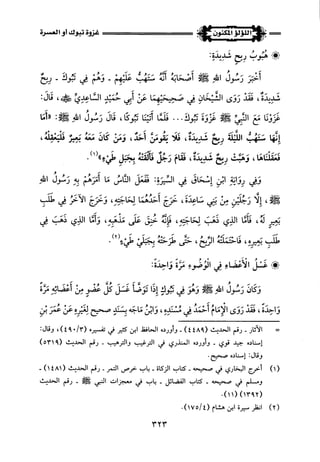 اللؤلؤ المكنون
غزوة تبوك أو العسرة
هُبُوبُ رِيحٍ شَدِيدَةٍ:
أَخْبَرَ رَسُولُ اللهِ ﷺ أَصْحَابَهُ أَنَّهُ سَتَهُبُّ عَلَيْهِمْ - وَهُمْ فِي تَبُوكَ - رِيحٌ
شَدِيدَةٌ، فَقَدْ رَوَى الشَّيْخَانِ فِي صَحِيحَيْهِمَا عَنْ أَبِي حُمَيْدٍ السَّاعِدِيِّ ﷺ، قَالَ:
غَزَوْنَا مَعَ النَّبِيِّ ﷺ غَزْوَةَ تَبُوكَ... فَلَمَّا أَتَيْنَا تَبُوكَ، قَالَ رَسُولُ اللهِ ﷺ: «أَمَا
إِنَّهَا سَتَهُبُّ اللَّيْلَةَ رِيحٌ شَدِيدَةٌ، فَلَا يَقُومَنَّ أَحَدٌ، وَمَنْ كَانَ مَعَهُ بَعِيرٌ فَلْيَعْقِلْهُ،
فَعَقَلْنَاهَا، وَهَبَّتْ رِيحٌ شَدِيدَةٌ، فَقَامَ رَجُلٌ فَأَلْقَتْهُ بِجَبَلِ طَيِّءٍ»(١).
وَفِي رِوَايَةِ ابْنِ إِسْحَاقَ فِي السِّيرَةِ: فَفَعَلَ النَّاسُ مَا أَمَرَهُمْ بِهِ رَسُولُ اللهِ
ﷺ، إِلَّا رَجُلَيْنِ مِنْ بَنِي سَاعِدَةَ، خَرَجَ أَحَدُهُمَا لِحَاجَتِهِ، وَخَرَجَ الْآخَرُ فِي طَلَبِ
بَعِيرٍ لَهُ، فَأَمَّا الَّذِي ذَهَبَ لِحَاجَتِهِ، فَإِنَّهُ خُنِقَ عَلَى مَذْهَبِهِ، وَأَمَّا الَّذِي ذَهَبَ فِي
طَلَبِ بَعِيرِهِ، فَاحْتَمَلَتْهُ الرِّيحُ، حَتَّى طَرَحَتْهُ بِجَبَلَيْ طَيِّءٍ(٢).
غَسْلُ الْأَعْضَاءِ فِي الْوُضُوءِ مَرَّةً وَاحِدَةً:
وَكَانَ رَسُولُ اللهِ ﷺ وَهُوَ فِي تَبُوكَ إِذَا تَوَضَّأَ غَسَلَ كُلَّ عُضْوٍ مِنْ أَعْضَائِهِ مَرَّةً
وَاحِدَةً، فَقَدْ رَوَى الْإِمَامُ أَحْمَدُ فِي مُسْنَدِهِ، وَابْنُ مَاجَه بِسَنَدٍ صَحِيحٍ لِغَيْرِهِ عَنْ عُمَرَ بْنِ
= الآثار - رقم الحديث (٤٤٨٩) - وأورده الحافظ ابن كثير في تفسيره (٤٩٠/٣)، وقال:
إسناده جيد قوي - وأورده المنذري في الترغيب والترهيب - رقم الحديث (٥٣١٩)
وقال: إسناده صحيح.
(١) أخرج البخاري في صحيحه - كتاب الزكاة - باب خرص التمر - رقم الحديث (١٤٨١) -
ومسلم في صحيحه - كتاب الفضائل - باب في معجزات النبي ﷺ - رقم الحديث
(١٣٩٢) (١١).
(٢) انظر سيرة ابن هشام (١٧٥/٤).
٣٢٣